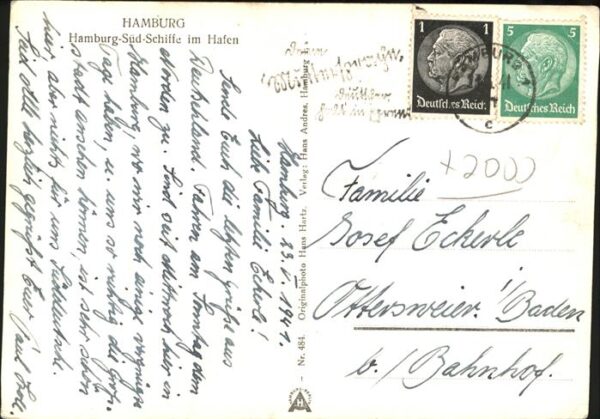 HAMBURG
Hamburg-Süd-Schiffe im Hafen
Hamburg. 23.V.1941.
Liebe Familie Eckerle!
Sende Euch die letzten Grüße aus
Deutschland. Fahren am Sonntag dem
Norden zu. Sind seit Mittwoch hier in
Hamburg, wo wir noch einige
Tage haben, u. uns so richtig die Groß-
stadt ansehen können, ist sehr schön
hier, aber nichts für uns Süddeutsche.
Seid viel gegrüßt Euer Paul
Nr. 484. Originalphoto Hans Hartz. Verlag: Hans Andres, Hamburg
1
Deutsches Reich
5
Deutsches Reich
HAMBURG
c
+2000
Familie
Josef Eckerle
Ottersweier/Baden
b/ Bahnhof.